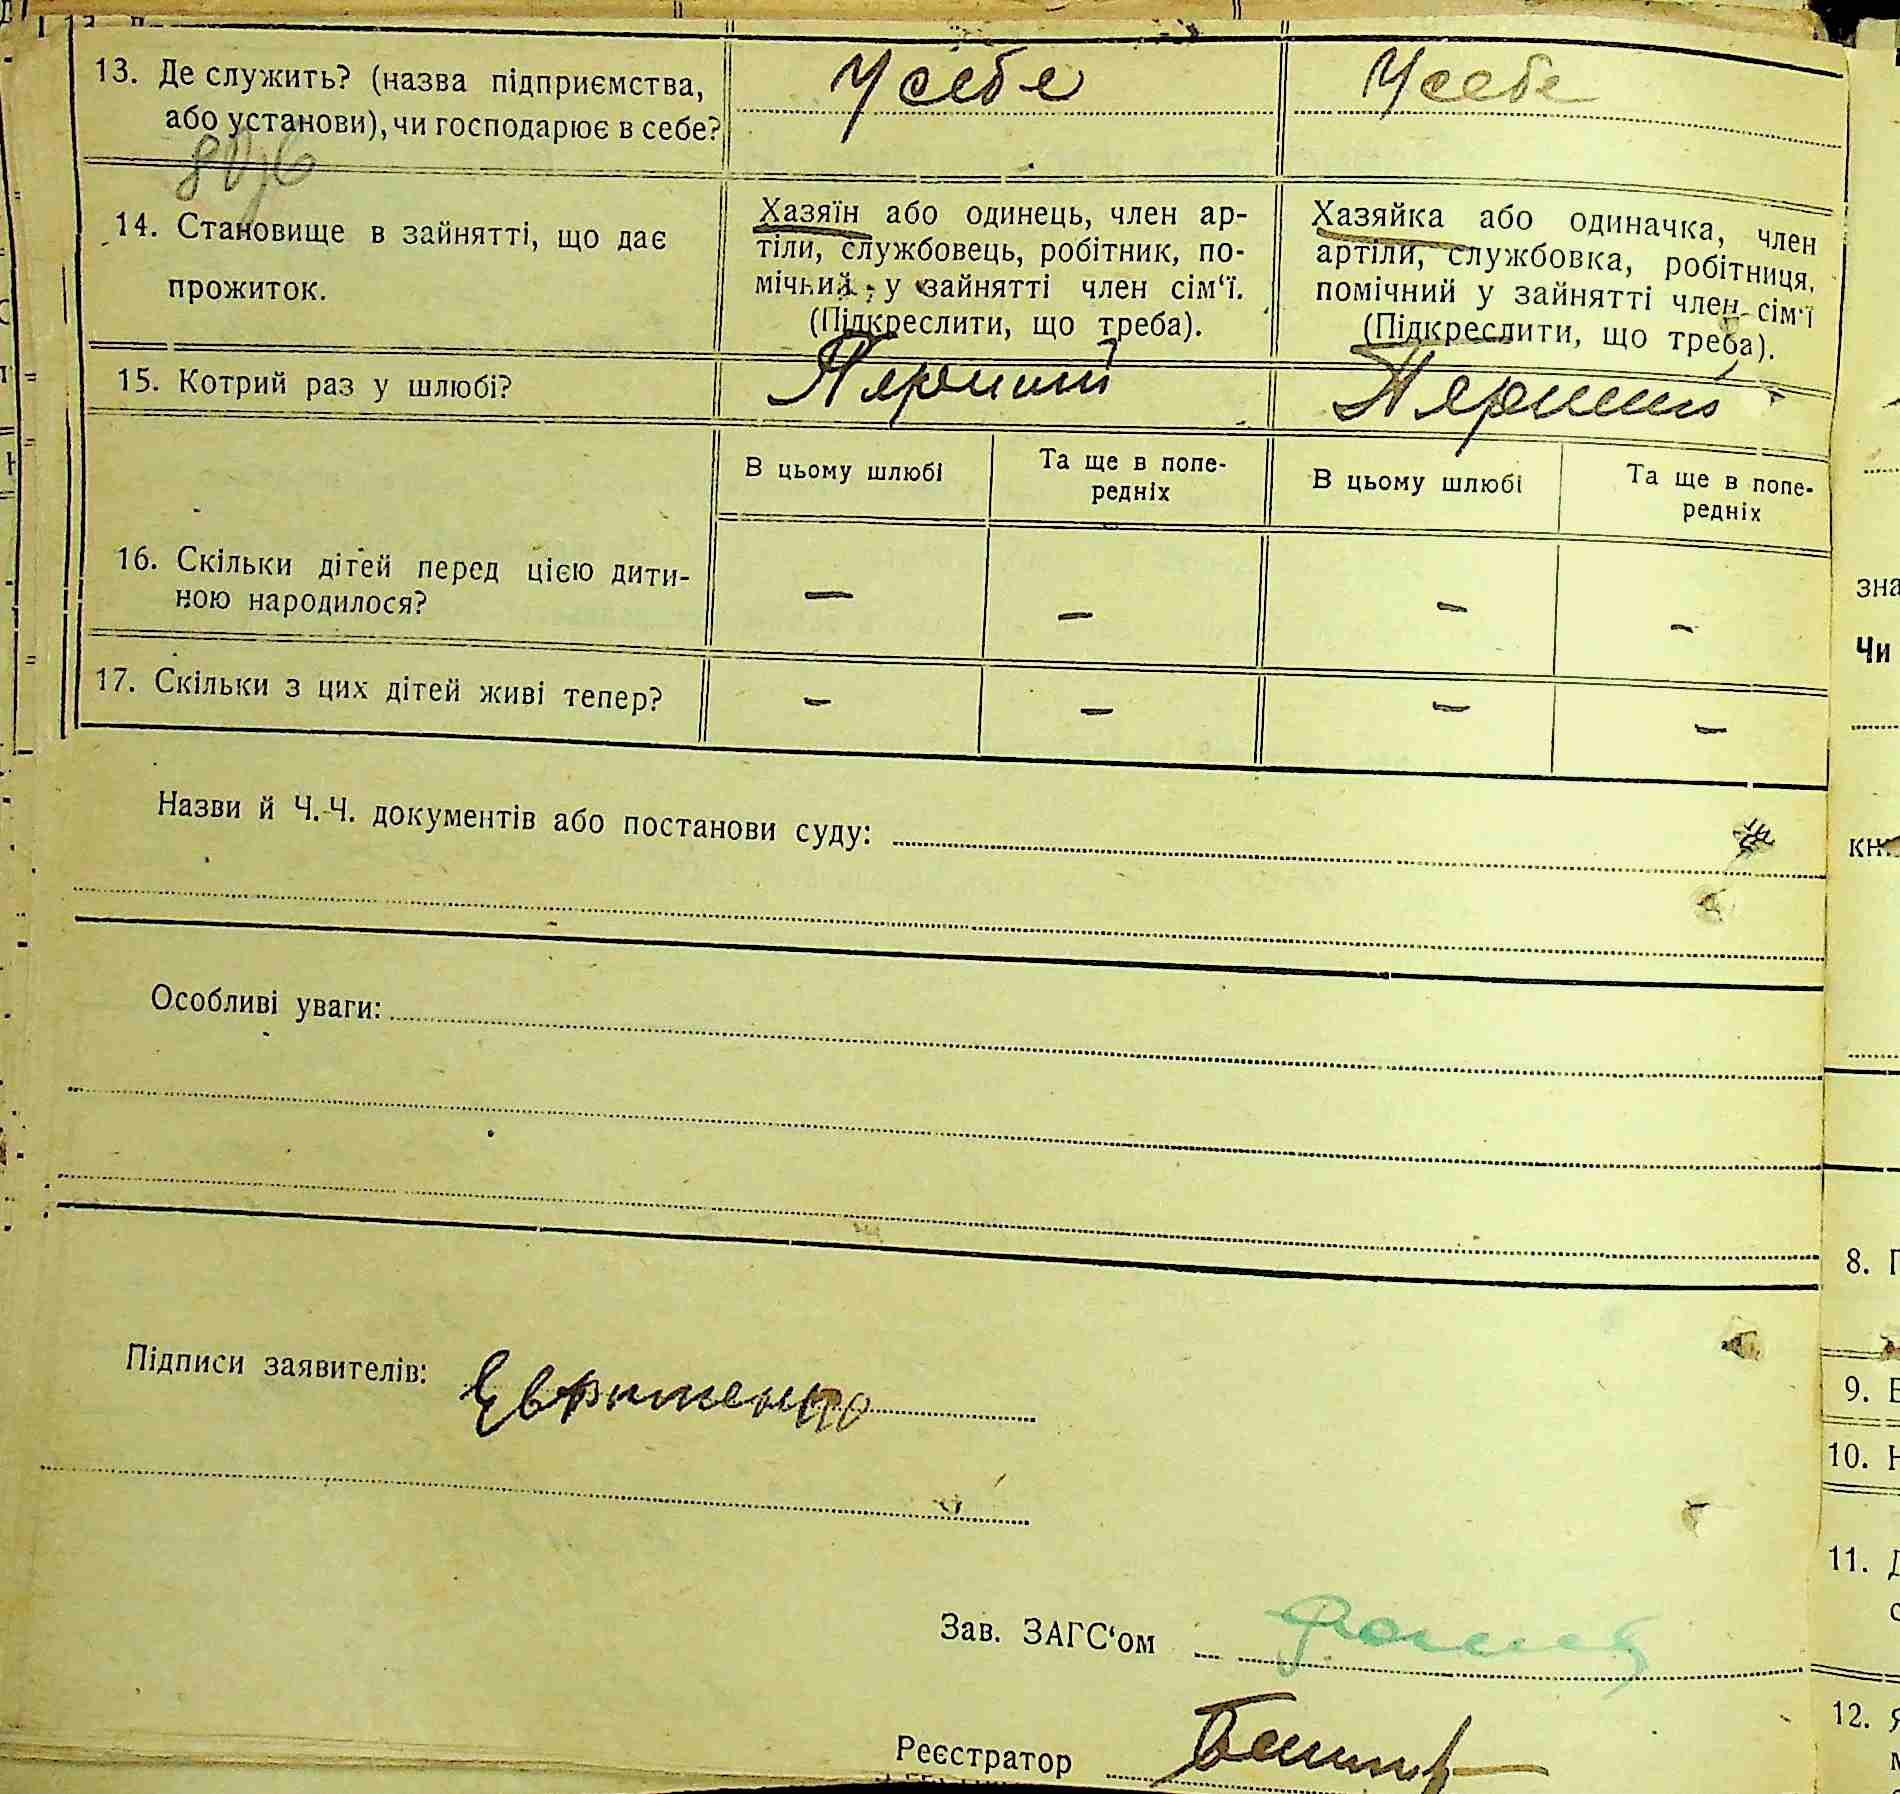 13. Де служить? (назва підприємства, або установи), чи господарює в себе?
У себе
У себе
14. Становище в зайнятті, що дає прожиток.
Хазяїн або одинець, член ар-
тіли, службовець, робітник, по-
мічний у зайнятті член сім‘ї.
(Підкреслити, що треба).
Хазяйка або одиначка, член
артіли, службовка, робітниця,
помічний у зайнятті член сім‘ї
(Підкреслити, що треба).
15. Котрий раз у шлюбі?
Перший
Перший
В цьому шлюбі
Та ще в попе-
редніх
В цьому шлюбі
Та ще в попе-
редніх
16. Скільки дітей перед цією дити-
ною народилося?
—
—
—
—
17. Скільки з цих дітей живі тепер?
—
—
—
—
Назви й Ч.-Ч. документів або постанови суду:
Особливі уваги:
Підписи заявителів:
Зав. ЗАГС‘ом
Реєстратор
зна
Чи
8. П
9.
10. Н
11. Д
12. Я